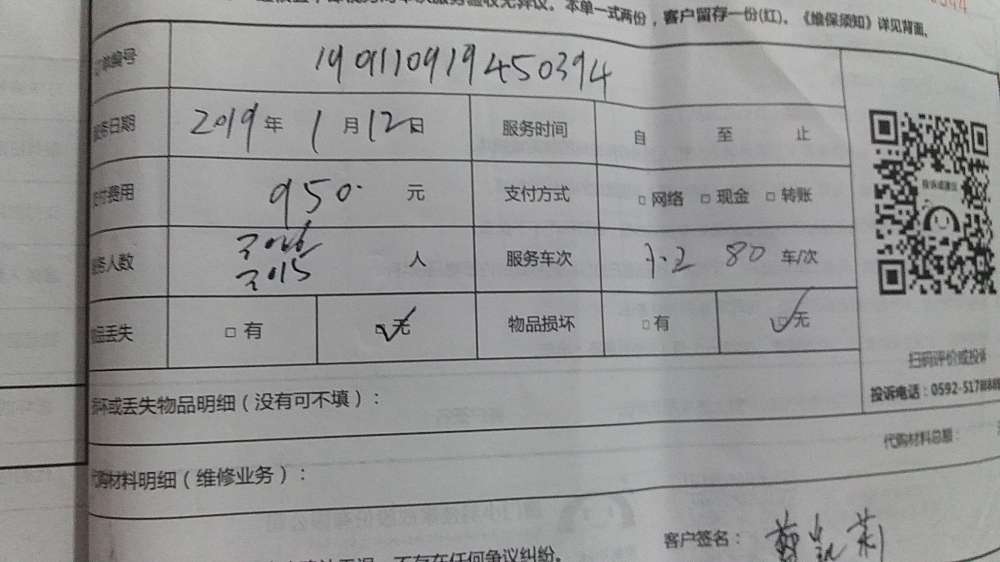 本单一式两份，客户留存一份(红)。《维保须知》详见背面。
订单编号 190110919450394
服务日期 2019年 1月12日 服务时间 自 至 止
支付费用 950 元 支付方式 □网络 □现金 □转账
服务人数 人 服务车次 80 车/次
物品丢失 □有 □无 物品损坏 □有 □无
投诉或建议
扫码评价或投诉
投诉电话：0592-517
损坏或丢失物品明细（没有可不填）：
代购材料总额：
代购材料明细（维修业务）：
客户签名：
不存在任何争议纠纷。